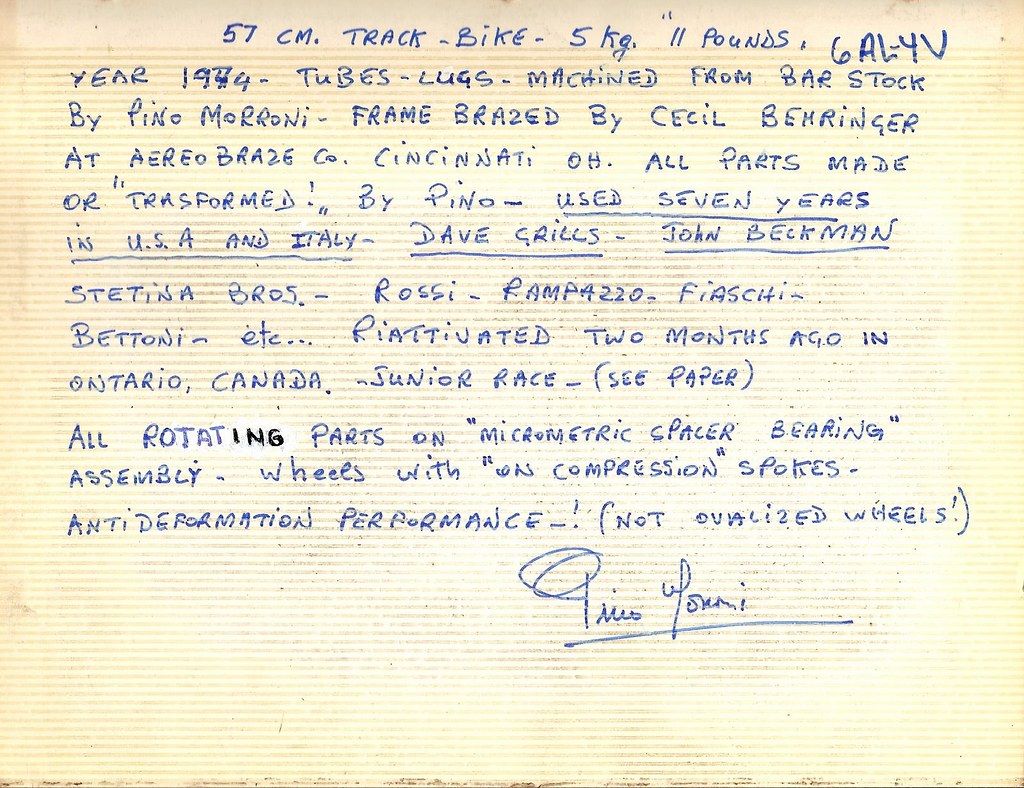 57 CM. TRACK-BIKE- 5 Kg. "11 POUNDS. 6AL-4V
YEAR 1974- TUBES-LUGS- MACHINED FROM BAR STOCK
By PiNO MORRONi- FRAME BRAZED By CECIL BEHRINGER
AT AEREOBRAZE Co. CiNCiNNATi OH. ALL PARTS MADE
OR "TRASFORMED!" By PiNO- USED SEVEN yEARS
iN U.S.A AND ITALY- DAVE GRILLS- JOHN BECKMAN
STETiNA BROS.- ROSSi- RAMPAZZO- FiASCHi-
BETTONi- etc... RiATTiVATED TWO MONTHS AGO IN
ONTARIO, CANADA. -JUNiOR RACE- (SEE PAPER)
ALL ROTATING PARTS ON "MiCROMETRiC SPACER BEARING"
ASSEMBLY- Wheels with "ON COMPRESSION" SPOKES-
ANTiDEFORMATiON PERFORMANCE-! (NOT OVALiZED WHEELS!)
Pino Morroni